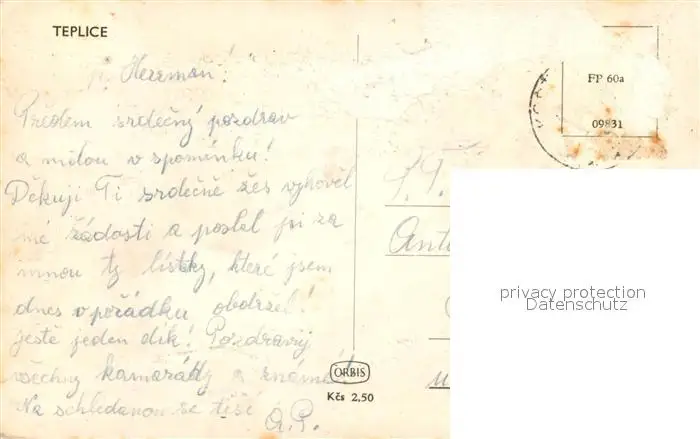 TEPLICE
p. Herrman!
Předem srdečný pozdrav
a milou v spomínku!
Děkuji Ti srdečně žes vyhověl
mé žádosti a poslal jsi za
mnou ty lístky, které jsem
dnes v pořádku obdržel!
ještě jeden dík! Pozdravuj
všechny kamarády a známé!
Na schledanou se těší
A.P.
FP 60a
09831
ORBIS
Kčs 2,50
privacy protection
Datenschutz